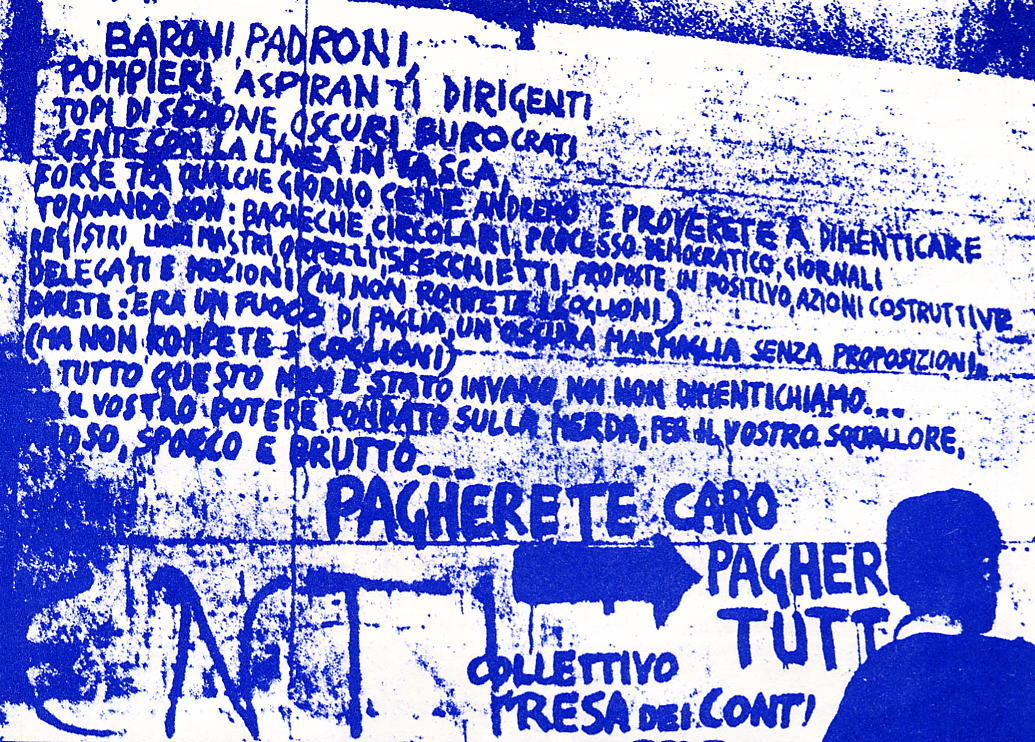 BARONI, PADRONI,
POMPIERI, ASPIRANTI DIRIGENTI
TOPI DI SEZIONE, OSCURI BUROCRATI
GENTE CON LA LINEA IN TASCA,
FORSE TRA QUALCHE GIORNO CE NE ANDREMO E PROVERETE A DIMENTICARE
TORNANDO CON: BACHECHE CIRCOLARI, PROCESSO DEMOCRATICO, GIORNALI
REGISTRI, LIBRI MASTRI, ORPELLI, SPECCHIETTI, PROPOSTE IN POSITIVO, AZIONI COSTRUTTIVE
DELEGATI E MOZIONI (MA NON ROMPETE I COGLIONI)
DIRETE: ERA UN FUOCO DI PAGLIA, UN'OSCURA MARMAGLIA SENZA PROPOSIZIONI,
(MA NON ROMPETE I COGLIONI)
TUTTO QUESTO NON E STATO INVANO, NOI NON DIMENTICHIAMO...
IL VOSTRO POTERE FONDATO SULLA MERDA, PER IL VOSTRO SQUALLORE,
OSO, SPORCO E BRUTTO....
PAGHERETE CARO
PAGHER
TUTT
ENTI
COLLETTIVO
PRESA DEI CONTI